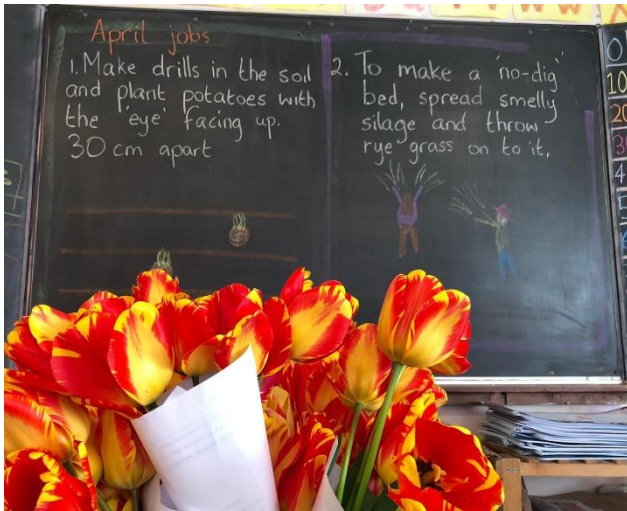 April jobs
1. Make drills in the soil
and plant potatoes with
the 'eye' facing up.
30 cm apart
2. To make a 'no-dig'
bed, spread smelly
silage and throw
rye grass on to it,